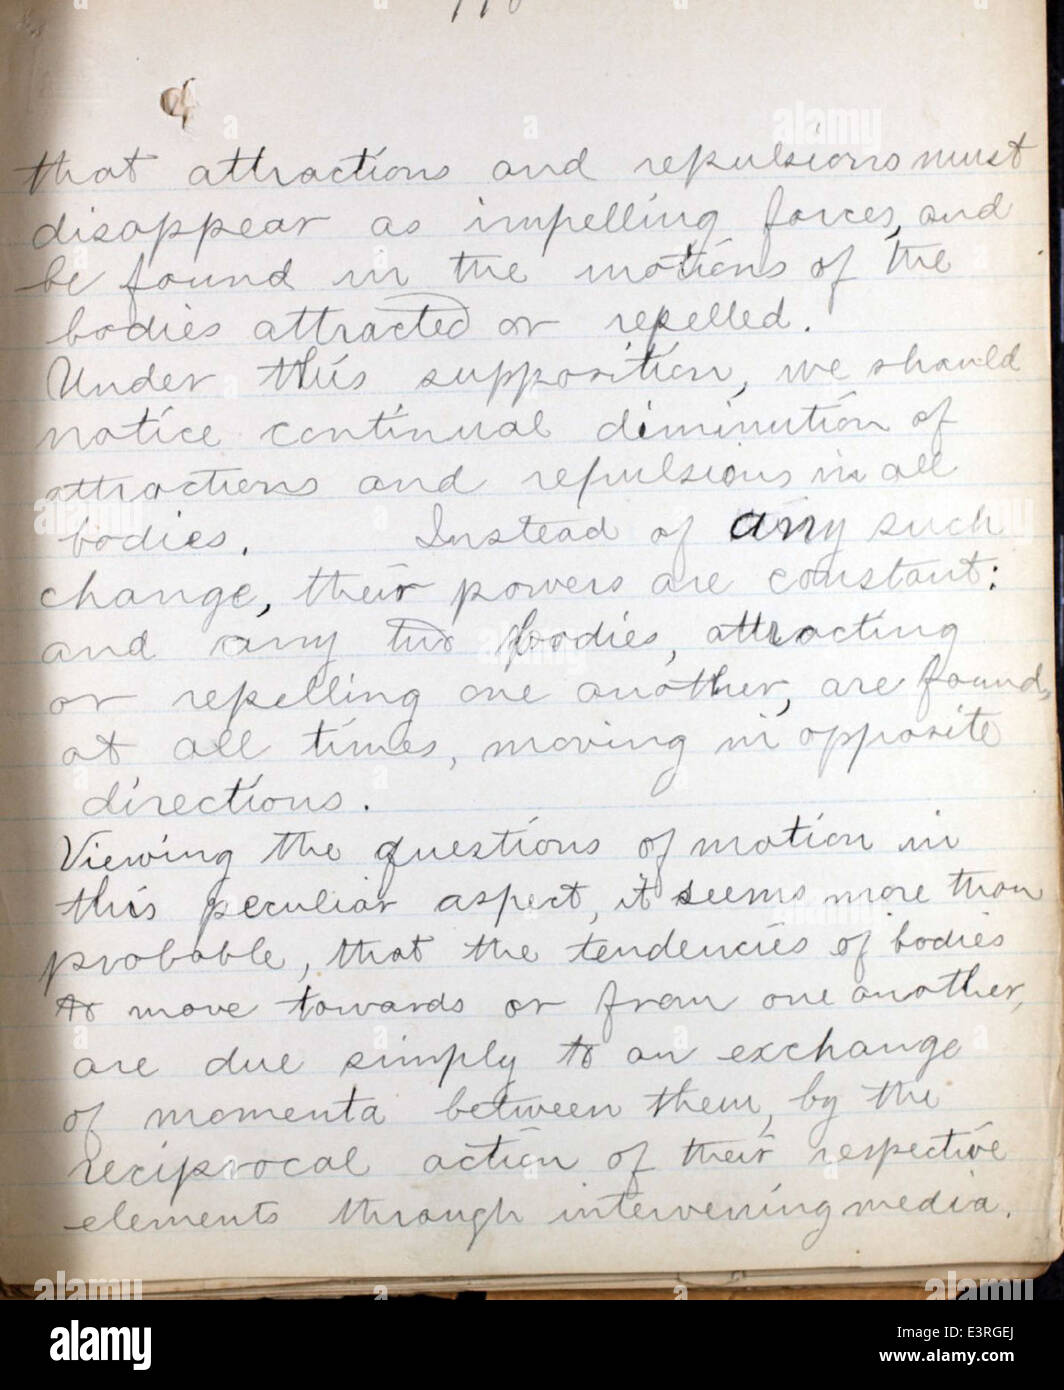 that attractions and repulsions must
disappear as impelling forces, and
be found in the motions of the
bodies attracted or repelled.
Under this supposition, we should
notice continual diminution of
attractions and repulsions in all
bodies. Instead of any such
change, their powers are constant:
and any two bodies, attracting
or repelling one another, are found,
at all times, moving in opposite
directions.
Viewing the questions of motion in
this peculiar aspect, it seems more than
probable, that the tendencies of bodies
to move towards or from one another,
are due simply to an exchange
of momenta between them, by the
reciprocal action of their respective
elements through intervening media.
alamy
Image ID: E3RGEJ
www.alamy.com